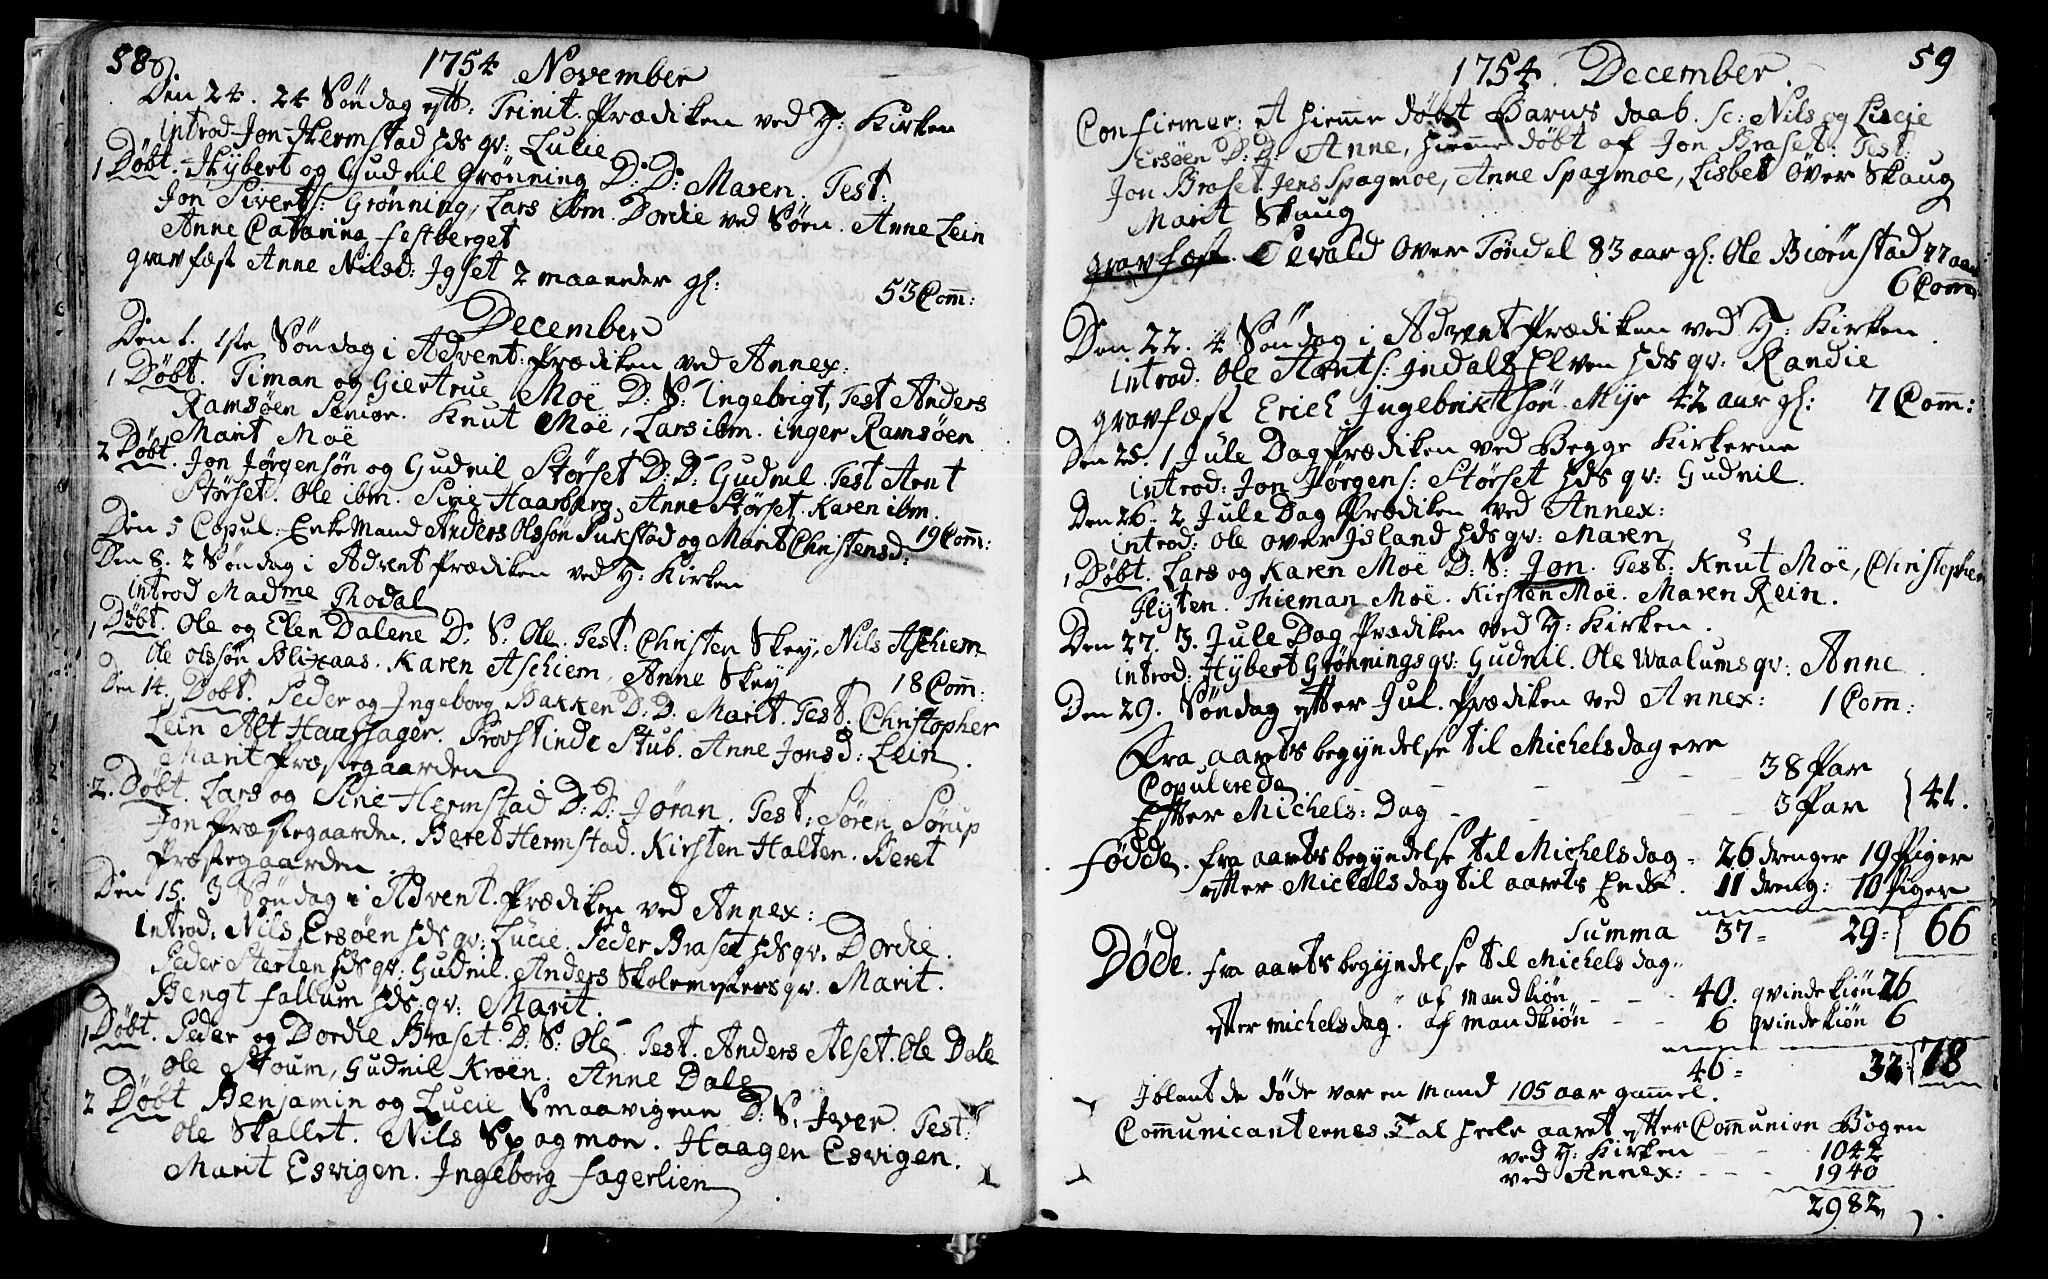 58
1754 November
Den 24. 24 Søndag eftt: Trinit. Prædiken ved H: Kirken
introd Jon Hermstad hds qv: Lucie
1 Døbt. Hÿbert og Gudnil Grønning D: D: Maren. Test:
Jon Siverts: Grønning, Lars ibm. Dordie ved Søen. Anne Lein
Anne Catarina Festberget
gravfæst Anne Nilsd: Igset 2 maaneder gl:
53 Com̄:
December
Den 1. 1ste Søndag i Advent: Prædiken ved Annex:
1 Døbt. Timan og Giertrue Moe D: S: Ingebrigt, Test Anders
Ramsøen Senior. Knut Moë, Lars ibm. inger Ramsøen
Marit Moë
2 Døbt. Jon Jørgensøn og Gudnil Størset D: D: Gudnil. Test Arnt
Størset. Ole ibm. Siri Haarberg, Anne Størset. Karen ibm.
19 Com̄:
Den 5 Copul: Enke Mand Anders Olssøn Sukstad og Marit Christensd:
Den 8. 2 Søndag i Advent Prædiken ved H: Kirken
introd Madme Thodal
1 Døbt. Ole og Elen Dalene D: S: Ole. Test: Christen Skey, Nils Aschiem
Ole Olssøn Blixaas. Karen Aschiem, Anne Skey
18 Com̄:
Den 14. Døbt. Peder og Ingeborg Bakken D: D. Marit. Test. Christopher
Lein Alt Haarhager. Provstinde Stub. Anne Jonsd: Lein.
Marit Præstegaarden
2. Døbt. Lars og Sine Hermstad D: D: Jøran. Test: Søren Sørup
Jon Præstegaarden. Beret Hermstad. Kirsten Halten. Beret
Præstegaarden
Den 15. 3 Søndag i Advent. Prædiken ved Annex:
Introd: Nils Ersøen hds qv: Lucie. Peder Braset hds qv. Dordie.
Peder Sterten hds qv: Gudnil. Anders Skolemesters qv. Marit.
Bengt fallum hds qv: Marit.
1 Døbt. Peder og Dordie Braset. D: S: Ole. Test. Anders Alset. Ole Dale
Ole Stoum, Gudnil Kroen. Anne Dale
2 Døbt Benjamin og Lucie Smaavigene D: S: Iver. Test:
Ole Skallet. Nils Spagmoe. Haagen Esvigen.
Marit Esvigen. Ingeborg Fagerlien
59
1754. December.
Confirmer: et hiemme døbt Barns daab. sc: Nils og Lucie
Ersøen D: D: Anne, hiemme døbt af Jon Braset. Test:
Jon Braset. Jens Spagmoe, Anne Spagmoe, Lisbet Over Skaug
Marit Skaug
gravfæst. Tevald Over Tøndel 83 aar gl: Ole Biørnstad 77 aar
6 Com̄
Den 22. 4 Søndag i Advent Prædiken ved H: Kirken.
introd: Ole Arnts: Indals Elven hds qv: Randie
gravfæst Erich Ingebriktsøn Myr 42 aar gl:
7 Com̄:
Den 25. 1 Jule Dag Prædiken ved Begge Kirkerne
introd: Jon Jørgens: Størset hds qv: Gudnil.
Den 26. 2 Jule Dag Prædiken ved Annex:
introd: Ole over Island hds qv: Maren
1 Døbt. Lars og Karen Moë D: S: Jon. Test: Knut Moë, Christopher
Flyten. Thieman Moë. Kirsten Moë. Maren Rein.
Den 27. 3. Jule Dag Prædiken ved H: Kirken.
introd: Hÿbert Grønnings qv: Gudnil. Ole Waalums qv: Anne.
Den 29. Søndag efter Jul. Prædiken ved Annex: 1 Com:
Fra aarets begyndelse til Michelsdag ere
Copulerede - - - 38 Par
Efter Michels: Dag - - - 3 Par } 41.
Fødde. fra aarets begyndelse til Michelsdag - 26 drenger 19 Piger
efter Michelsdag til aarets Ende. 11 dreng: 10 Piger
Summa 37 = 29 = 66
Døde. fra aarets begyndelse til Michels dag
af mandkiøn - - - 40. qvindekiøn 26
efter michelsdag. af mandkiøn - - 6 qvindekiøn 6
46 = 32 78
Iblant de døde var en Mand 105 aar gammel.
Com̄unicanternes Tal heele aaret efter Com̄union Bogen
ved H: Kirken - - - 1042
ved Annex: - - - 1940
2982